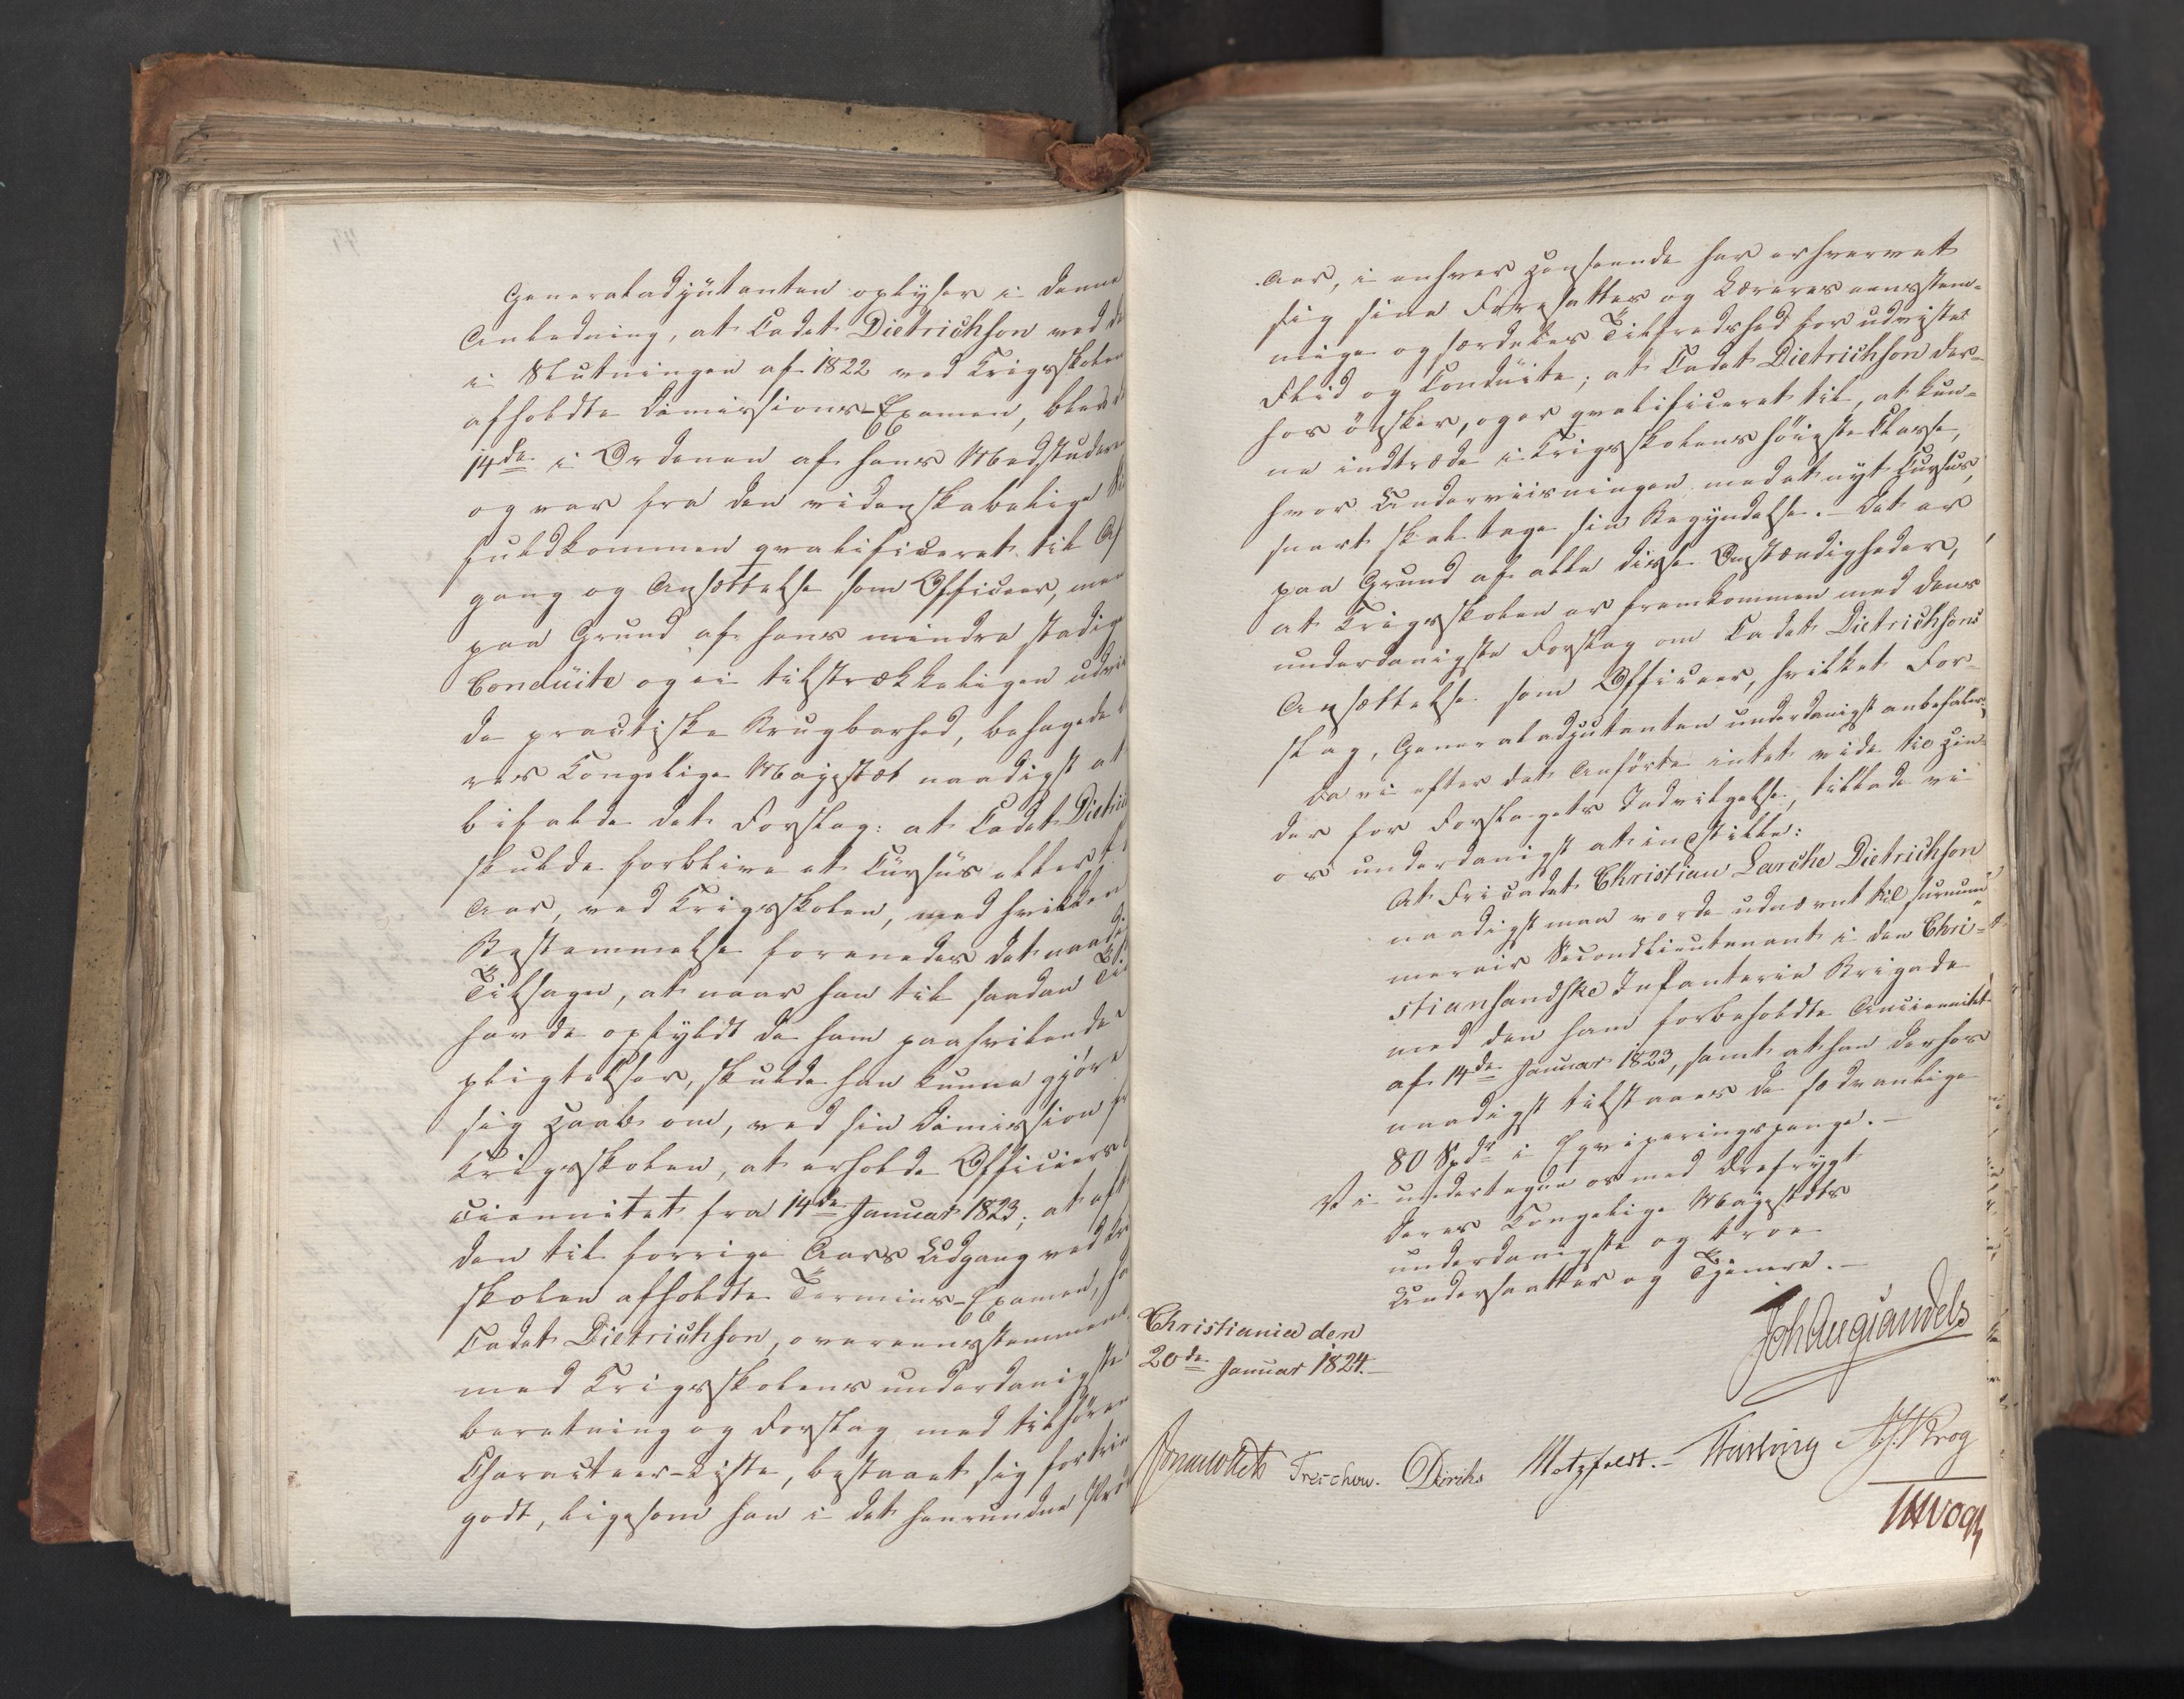 Generaladjütanten oplyser i denne
Anledning, at Cadet Dietrichson ved de
i Slutningen af 1822 ved Krigsskolen
afholdte Dimissions-Examen, blev d
14de i Ordenen af hans Medstudere
og var fra den videnskabelige Si
fuldkommen qvalificeret til Af
gang og Ansættelse som Officeer, men
paa Grund af hans mindre stadige
Condüite og ei tilstrækkeligen udvi
de practiske Brugbarhed, behagede
res Kongelige Majestæt naadigst at
bifalde det Forslag: at Cadet Dietrich
skulde forblive et Cürsüs eller
Aar, ved Krigsskolen, med hvilken
Bestemmelse forenedes det naadi
Tilsagn, at naar han til saadan Ti
havde opfyldt de ham paahvilende
pligtelser, skulde han kunne gjöre
sig Haab om, ved sin Dimission fr
Krigsskolen, at erholde Officiers
ciennitet fra 14de Januar 1823; at eft
den til forrige Aars Udgang ved Kr
skolen afholdte Termins-Examen, ha
Cadet Dietrichson, overeensstemmend
med Krigsskolens underdanigste
beretning og Forslag med tilhören
Characteer-Liste, bestaaet sig fortrin
godt, ligesom han i det henrundne Prö
Aar, i enhver Henseende har erhvervet
sig sine Foresattes og Læreres eensstem=
mige og særdeles Tilfredshed for udvist
Flid og Condüite; at Cadet Dietrichson der=
hos önsker, og er qvalificeret til, at kun=
ne indtræde i Krigsskolens höieste Classe,
hvor Underviisningen med et nyt Cursus,
snart skal tage sin Begyndelse. – Det er
paa Grund af alle disse Omstændigheder,
at Krigsskolen er fremkommen med dens
underdanigste Forslag om Cadet Dietrichsöns
Ansættelse som Officeer, hvilket For=
slag, Generaladjutanten underdanigst anbefaler.
Da vi efter det Anförte intet vide til Hin=
der for Forslagets Indvilgelse, tillade vi
os underdanigst at indstille:
At Fricadet Christian Lasche Dietrichson
naadigst maa vorde udnævnt til surnum=
merair Secondlieutenant i den Chri=
stiansandske Infanterie Brigade
med den ham forbeholdte Anciennitet
af 14de Januar 1823, samt at han derhos
naadigst tilstaaes de sædvanlige
80 Spdr i Eqviperingspenge. –
Vi undertegne os med Ærefrygt
Deres Kongelige Majestæts
underdanigste og troe
Undersaatter og Tjenere. –
Joh Aug Sandels
Christiania den
20de Januar 1824. –
Sommerhielm Treschow. Diriks Motzfeldt. – Fasting A. J. Krog
JH Vogt